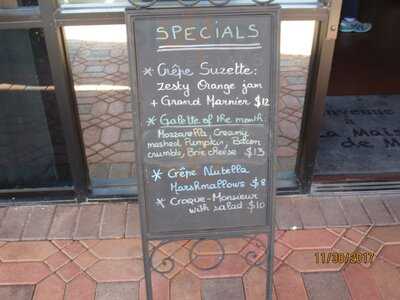 SPECIALS
* Crêpe Suzette:
zesty Orange jam
+ Grand Marnier $12
* Galette of the month
Mozzarella, Creamy
mashed Pumpkin, Bacon
crumble, Brie cheese $13
* Crêpe Nutella
Marshmallows $8
* Croque-Monsieur
with salad $10
La Mais
de M
11/30/2017